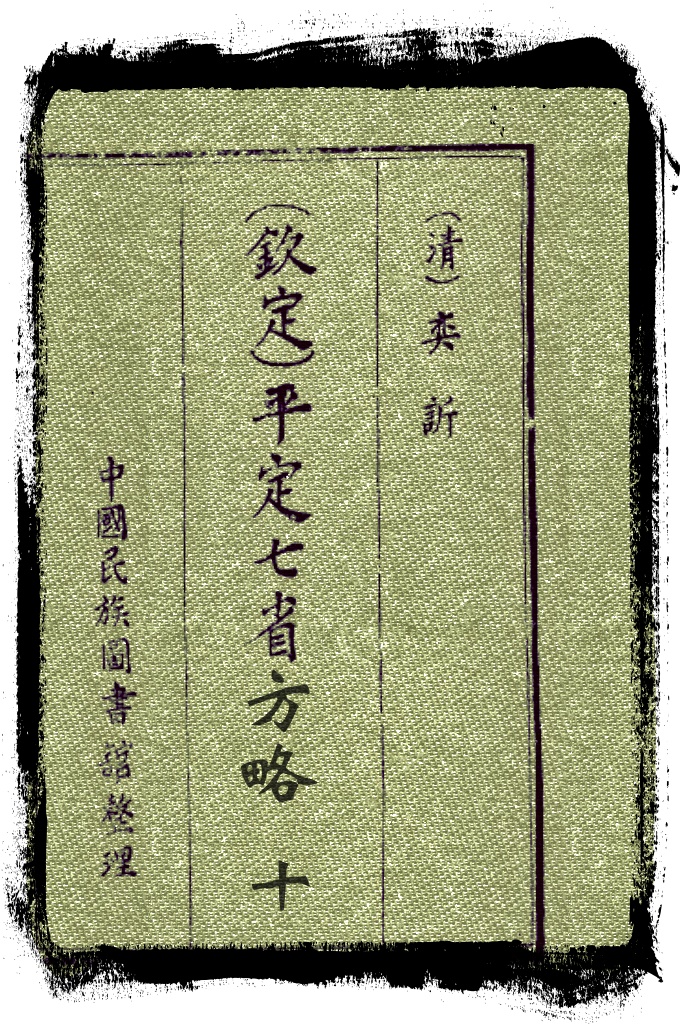 (清)奕訢
(欽定)平定七省方略 十
中國民族圖書館整理